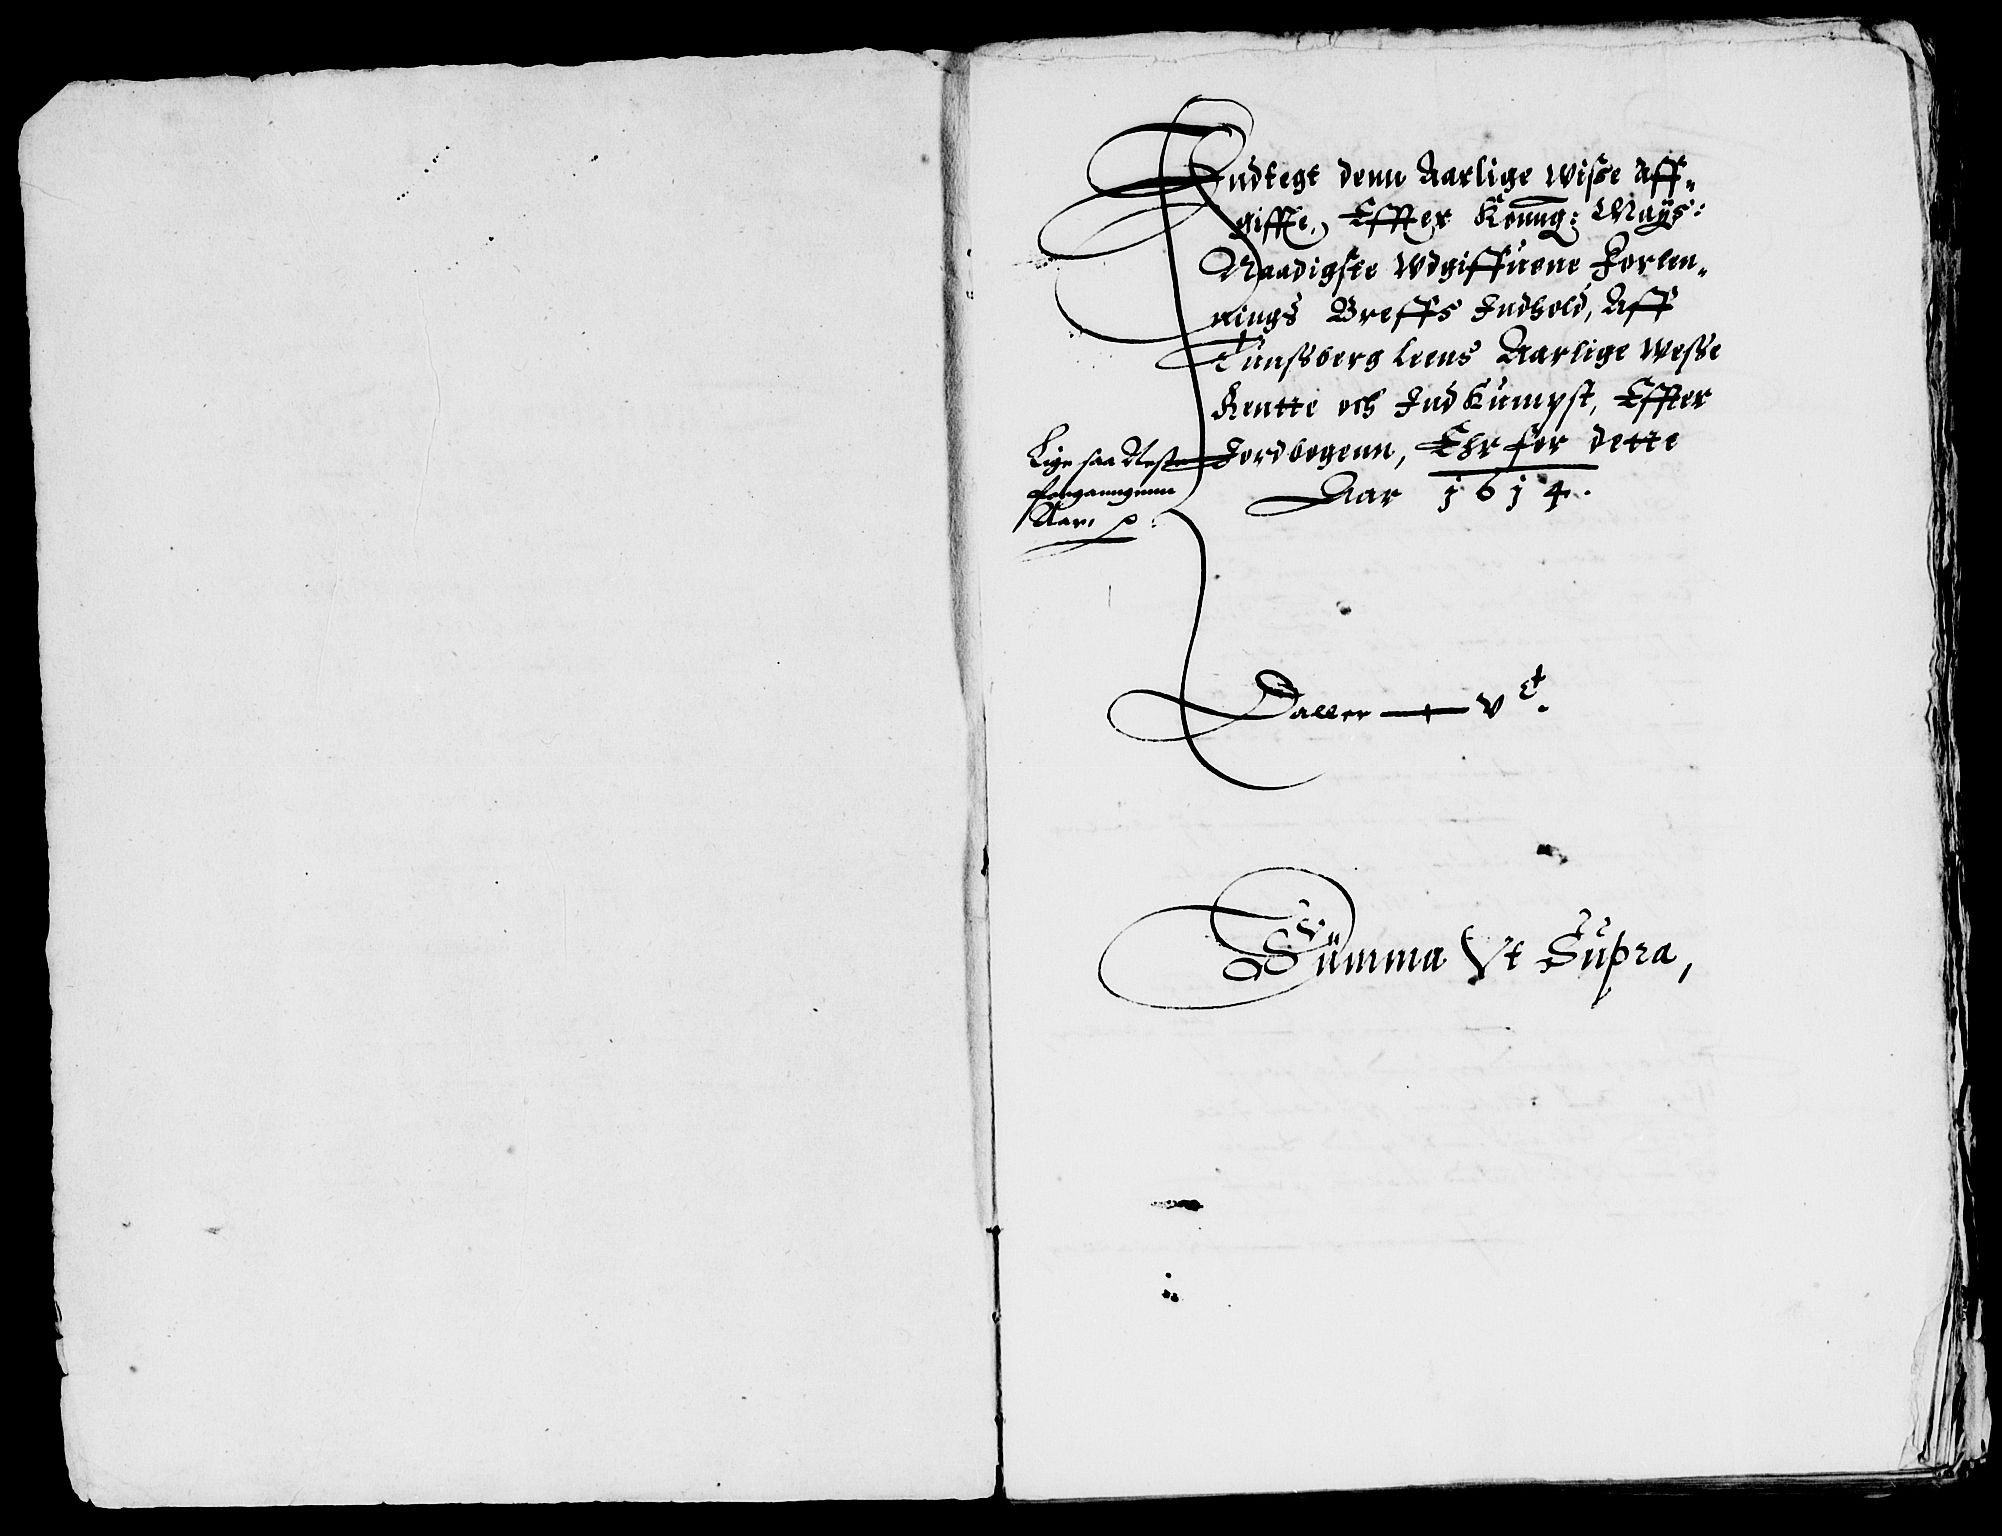 Indtegt denn Aarlige wisse Aff-
giffte, Effter Konng: Mayß:
Naadigste Wdgiffuene Forlen-
nings Breffs Indhold, Aff
Tunsberg Leens Aarlige Wesse
Rentte och Indkumpst, Effter
Jordbogenn, Ehr for dette
Aar 1614.
Lige saa Neste
forganngenn
Aar.
Daller — v c.
Summa Vt Supra,